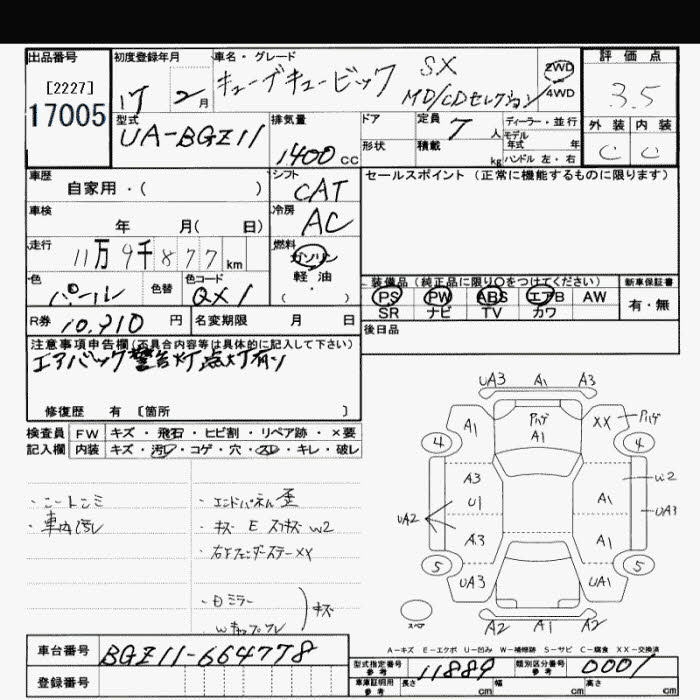 出品番号
[2227]
17005
初度登録年月
17 2月
車名・グレード
キューブキュービック SX
MD/CDセレクション
2WD
4WD
評価点
3.5
外装 内装
C C
型式
UA-BGZ11
排気量
1400cc
ドア
形状
定員 7人
積載 kg
ディーラー・並行
モデル年式 年
ハンドル 左・右
車歴
自家用・( )
シフト
CAT
セールスポイント (正常に機能するものに限ります)
車検
年 月( 日)
冷房
AC
走行
11万9千877km
燃料
ガソリン
軽・油
( ・ )
色
パール
色替
色コード
QX1
装備品 (純正品に限り○をつけてください)
PS PW ABS エアB AW
SR ナビ TV カワ
新車保証書
有・無
R券 10,910円
名変期限 月 日
後日品
注意事項申告欄(不具合内容等は具体的に記入して下さい)
エアバック警告灯点灯有り
修復歴 有 〔箇所 〕
検査員
記入欄
FW キズ・飛石・ヒビ割・リペア跡・×要
内装 キズ・汚レ・コゲ・穴・スレ・キレ・破レ
・車内汚レ
・エンドパネル歪
・キズ E スリキズ W2
UA3 A1 A3
A1 Pハゲ A1 XX Pハゲ
4 4
A3 W2
U1 A1 UA3
UA2
A3 A1
5 5
UA3 UA1
スペア
A2 A1 A2
A-キズ E-エクボ U-凹み W-補修跡 S-サビ C-腐食 XX-交換済
車台番号 BGZ11-664778
登録番号
型式指定番号 参考 11889
類別区分番号 参考 0001
車庫証明用 参考 長さ cm 幅 cm 高さ cm